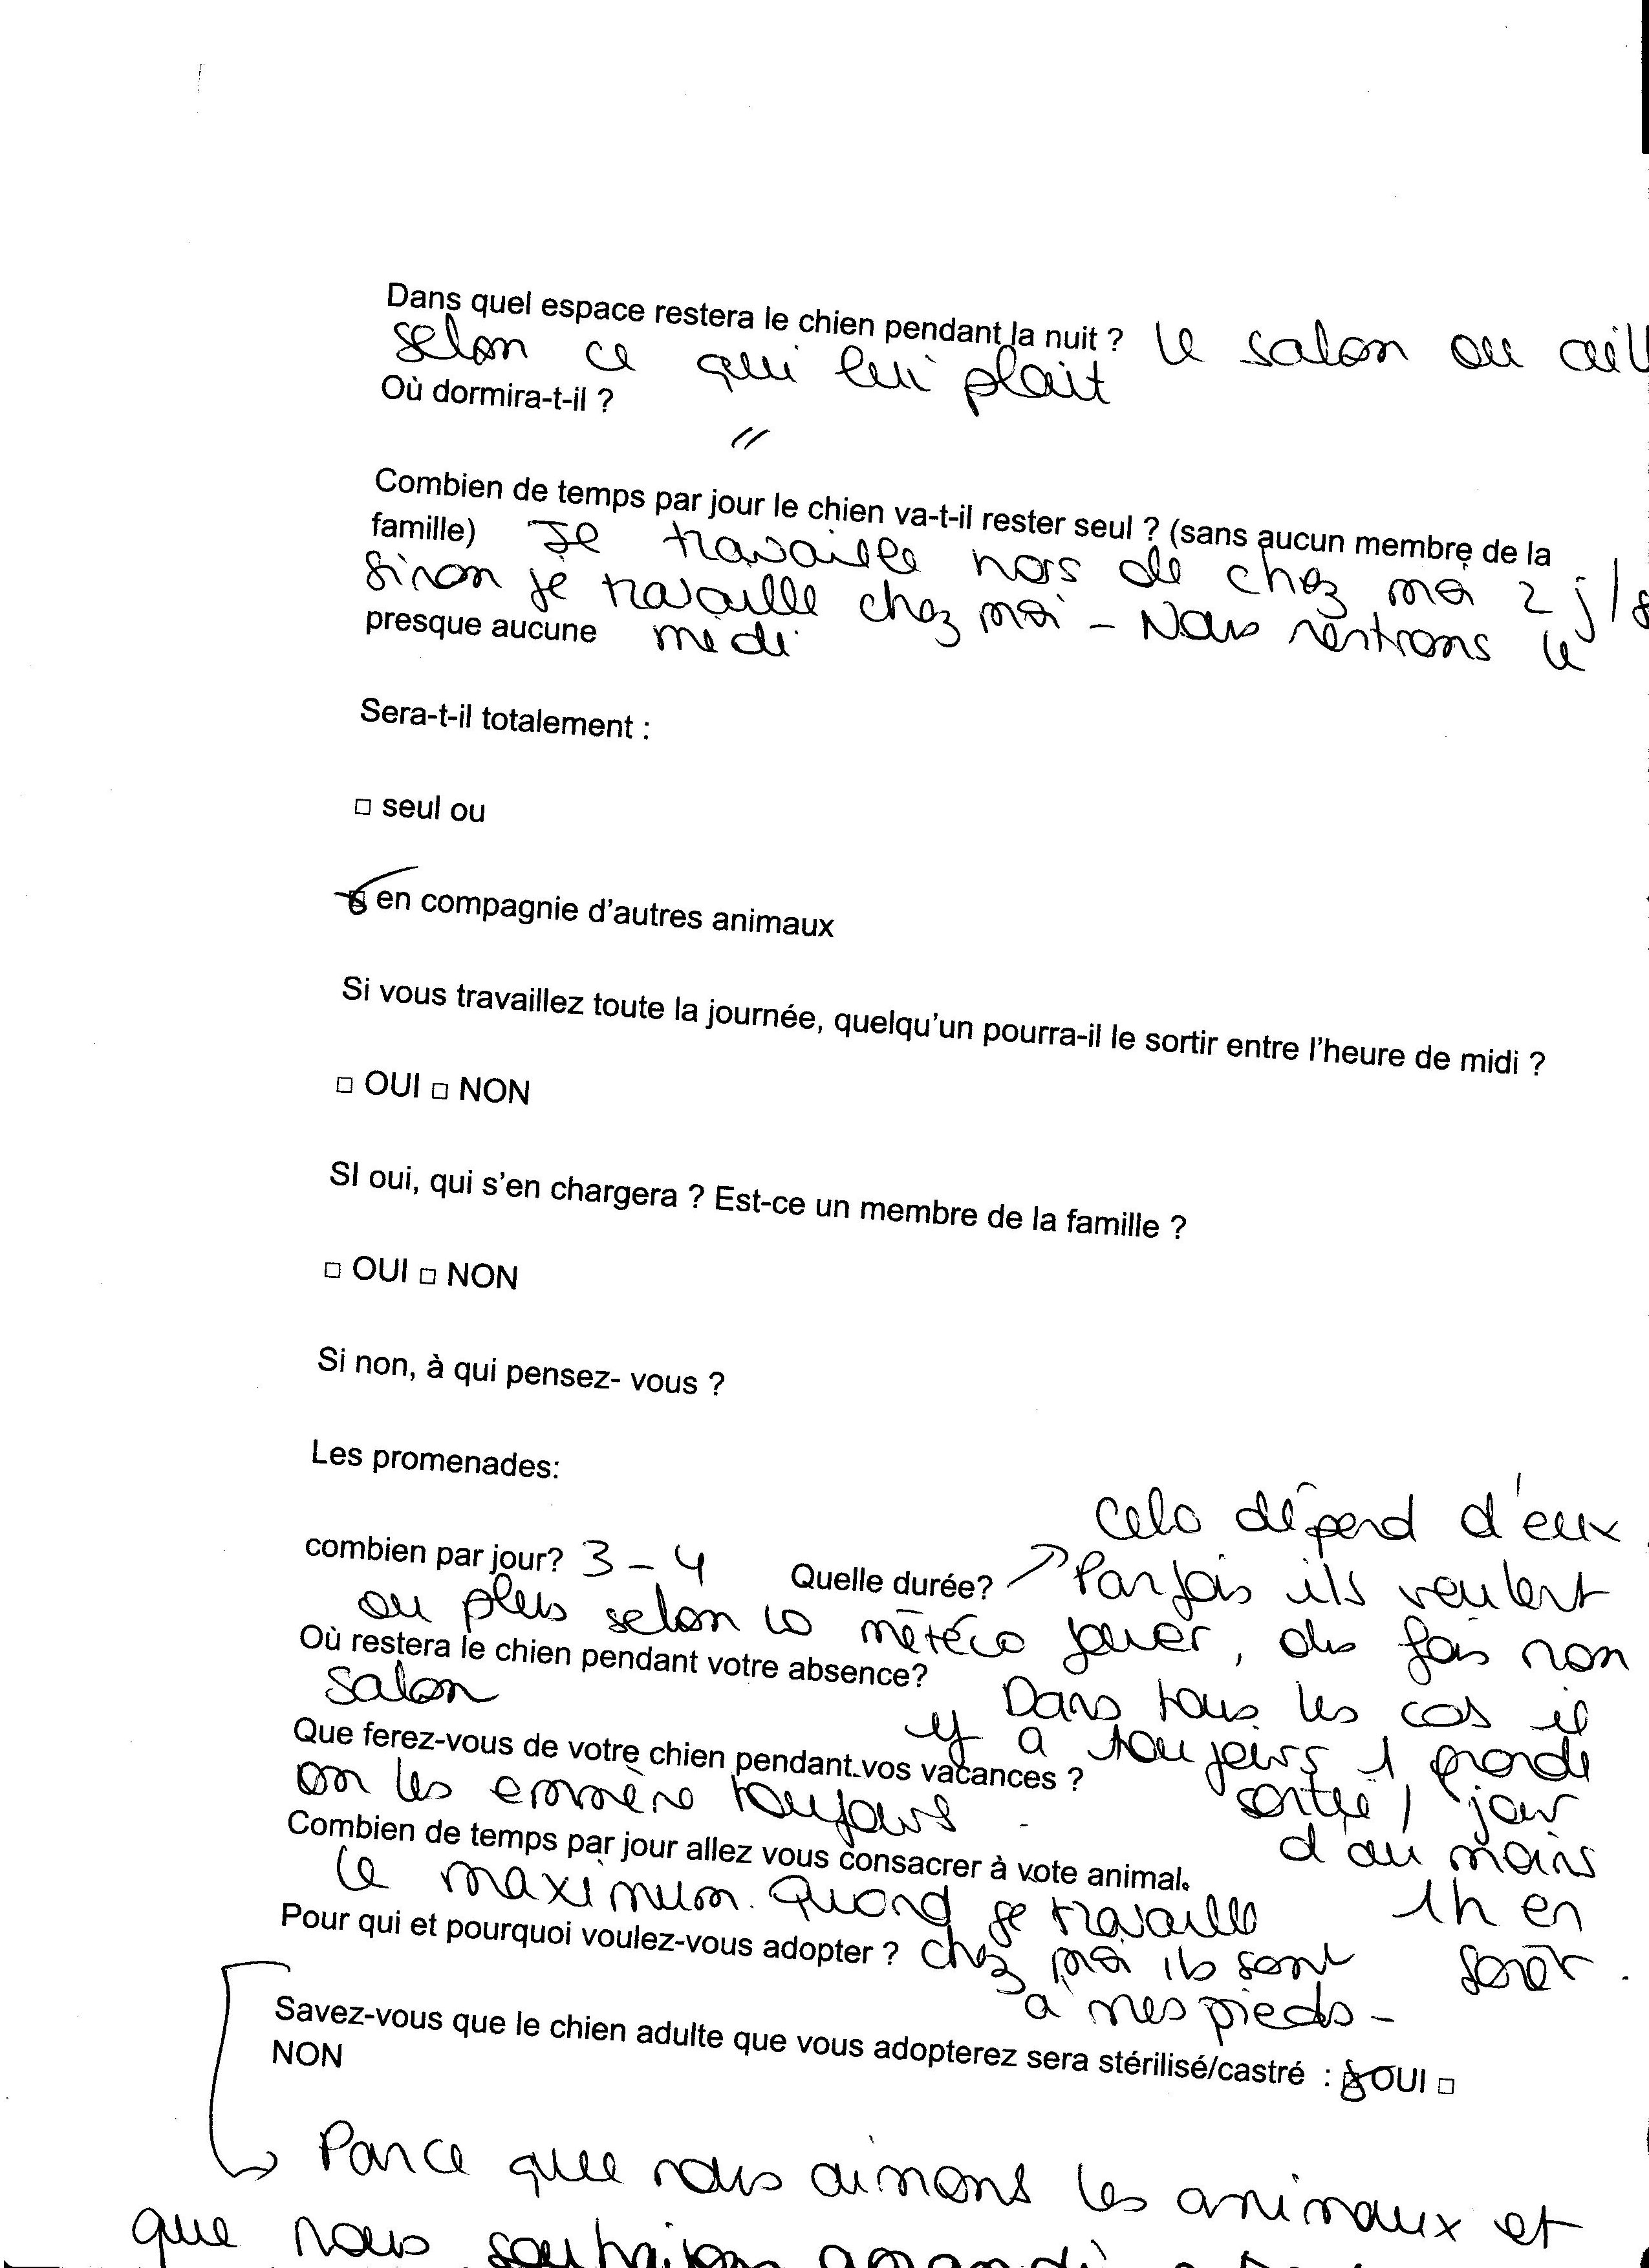 Dans quel espace restera le chien pendant la nuit ? le salon ou aill
selon ce qui lui plait
Où dormira-t-il ?
"
Combien de temps par jour le chien va-t-il rester seul ? (sans aucun membre de la
famille) Je travaille hors de chez moi 2 j/s
sinon je travaille chez moi - Nous rentrons le
presque aucune midi
Sera-t-il totalement :
□ seul ou
☒ en compagnie d'autres animaux
Si vous travaillez toute la journée, quelqu'un pourra-il le sortir entre l'heure de midi ?
□ OUI □ NON
SI oui, qui s'en chargera ? Est-ce un membre de la famille ?
□ OUI □ NON
Si non, à qui pensez- vous ?
Les promenades:
combien par jour? 3 - 4
ou plus selon la météo
Quelle durée? ↗ cela dépend d'eux.
Parfois ils veulent
jouer, des fois non
Dans tous les cas il
y a toujours 1 grande
sortie / jour
d'au moins
1h en
forêt.
Où restera le chien pendant votre absence?
salon
Que ferez-vous de votre chien pendant vos vacances ?
on les emmène toujours.
Combien de temps par jour allez vous consacrer à vote animal.
le maximum. Quand je travaille
chez moi ils sont
à mes pieds -
Pour qui et pourquoi voulez-vous adopter ?
Savez-vous que le chien adulte que vous adopterez sera stérilisé/castré : ☒ OUI □
NON
→ Parce que nous aimons les animaux et
que nous souhaitons agrandir